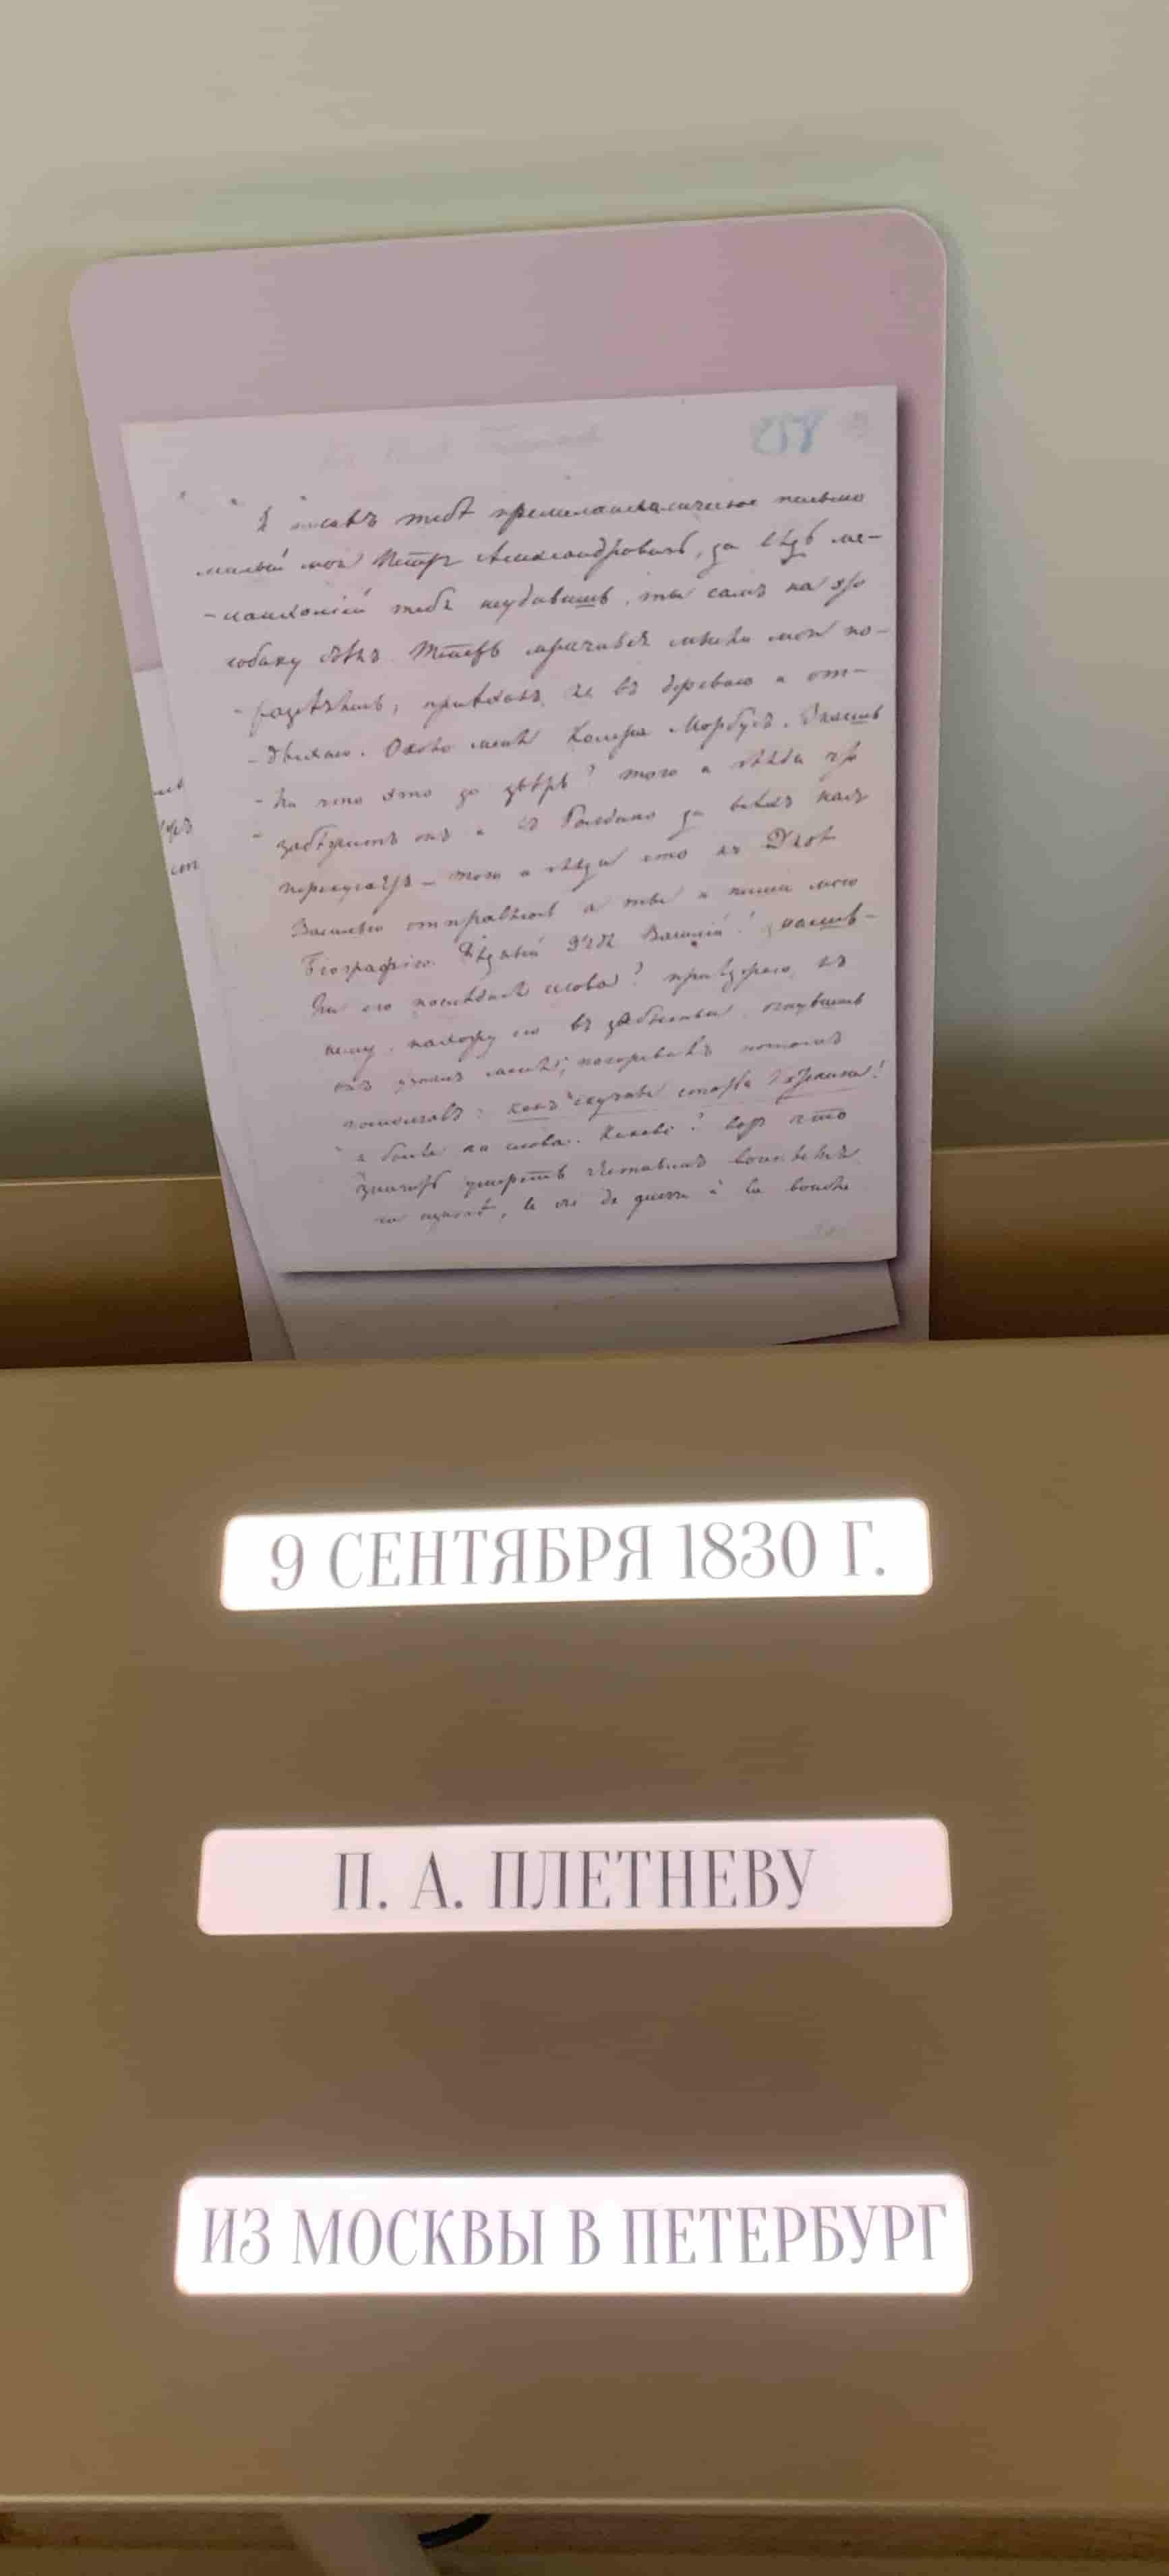 Я писалъ тебѣ премеланхолическое письмо
милый мой Петръ Александровичь, да вѣдь ме-
-ланхолiей тебя неудивишь, ты самъ на это
собаку съѣлъ. Теперь мрачныя мысли мои по-
-разсѣялись; приѣхалъ я въ деревню и от-
-дыхаю. Около меня Колера Морбусъ. Знаешь
-ли что это за звѣрь? того и гляди что
забѣжитъ онъ и въ Болдино да всѣхъ насъ
перекусаетъ — того и гляди что къ Дядѣ
Василью отправлюсь а ты и пиши мою
бiографiю. Бѣдный дядя Василий! знаешь-
ли его послѣднiя слова? приѣзжаю къ
нему, нахожу его въ забытьи, очнувшись
онъ узналъ меня, погоревалъ потомъ
помолчавъ: какъ скучны статьи Катенина!
и болѣе ни слова. Каково? вотъ что
значитъ умереть честнымъ воиномъ
на щитѣ, le cri de guerre à la bouche
9 СЕНТЯБРЯ 1830 Г.
П. А. ПЛЕТНЕВУ
ИЗ МОСКВЫ В ПЕТЕРБУРГ